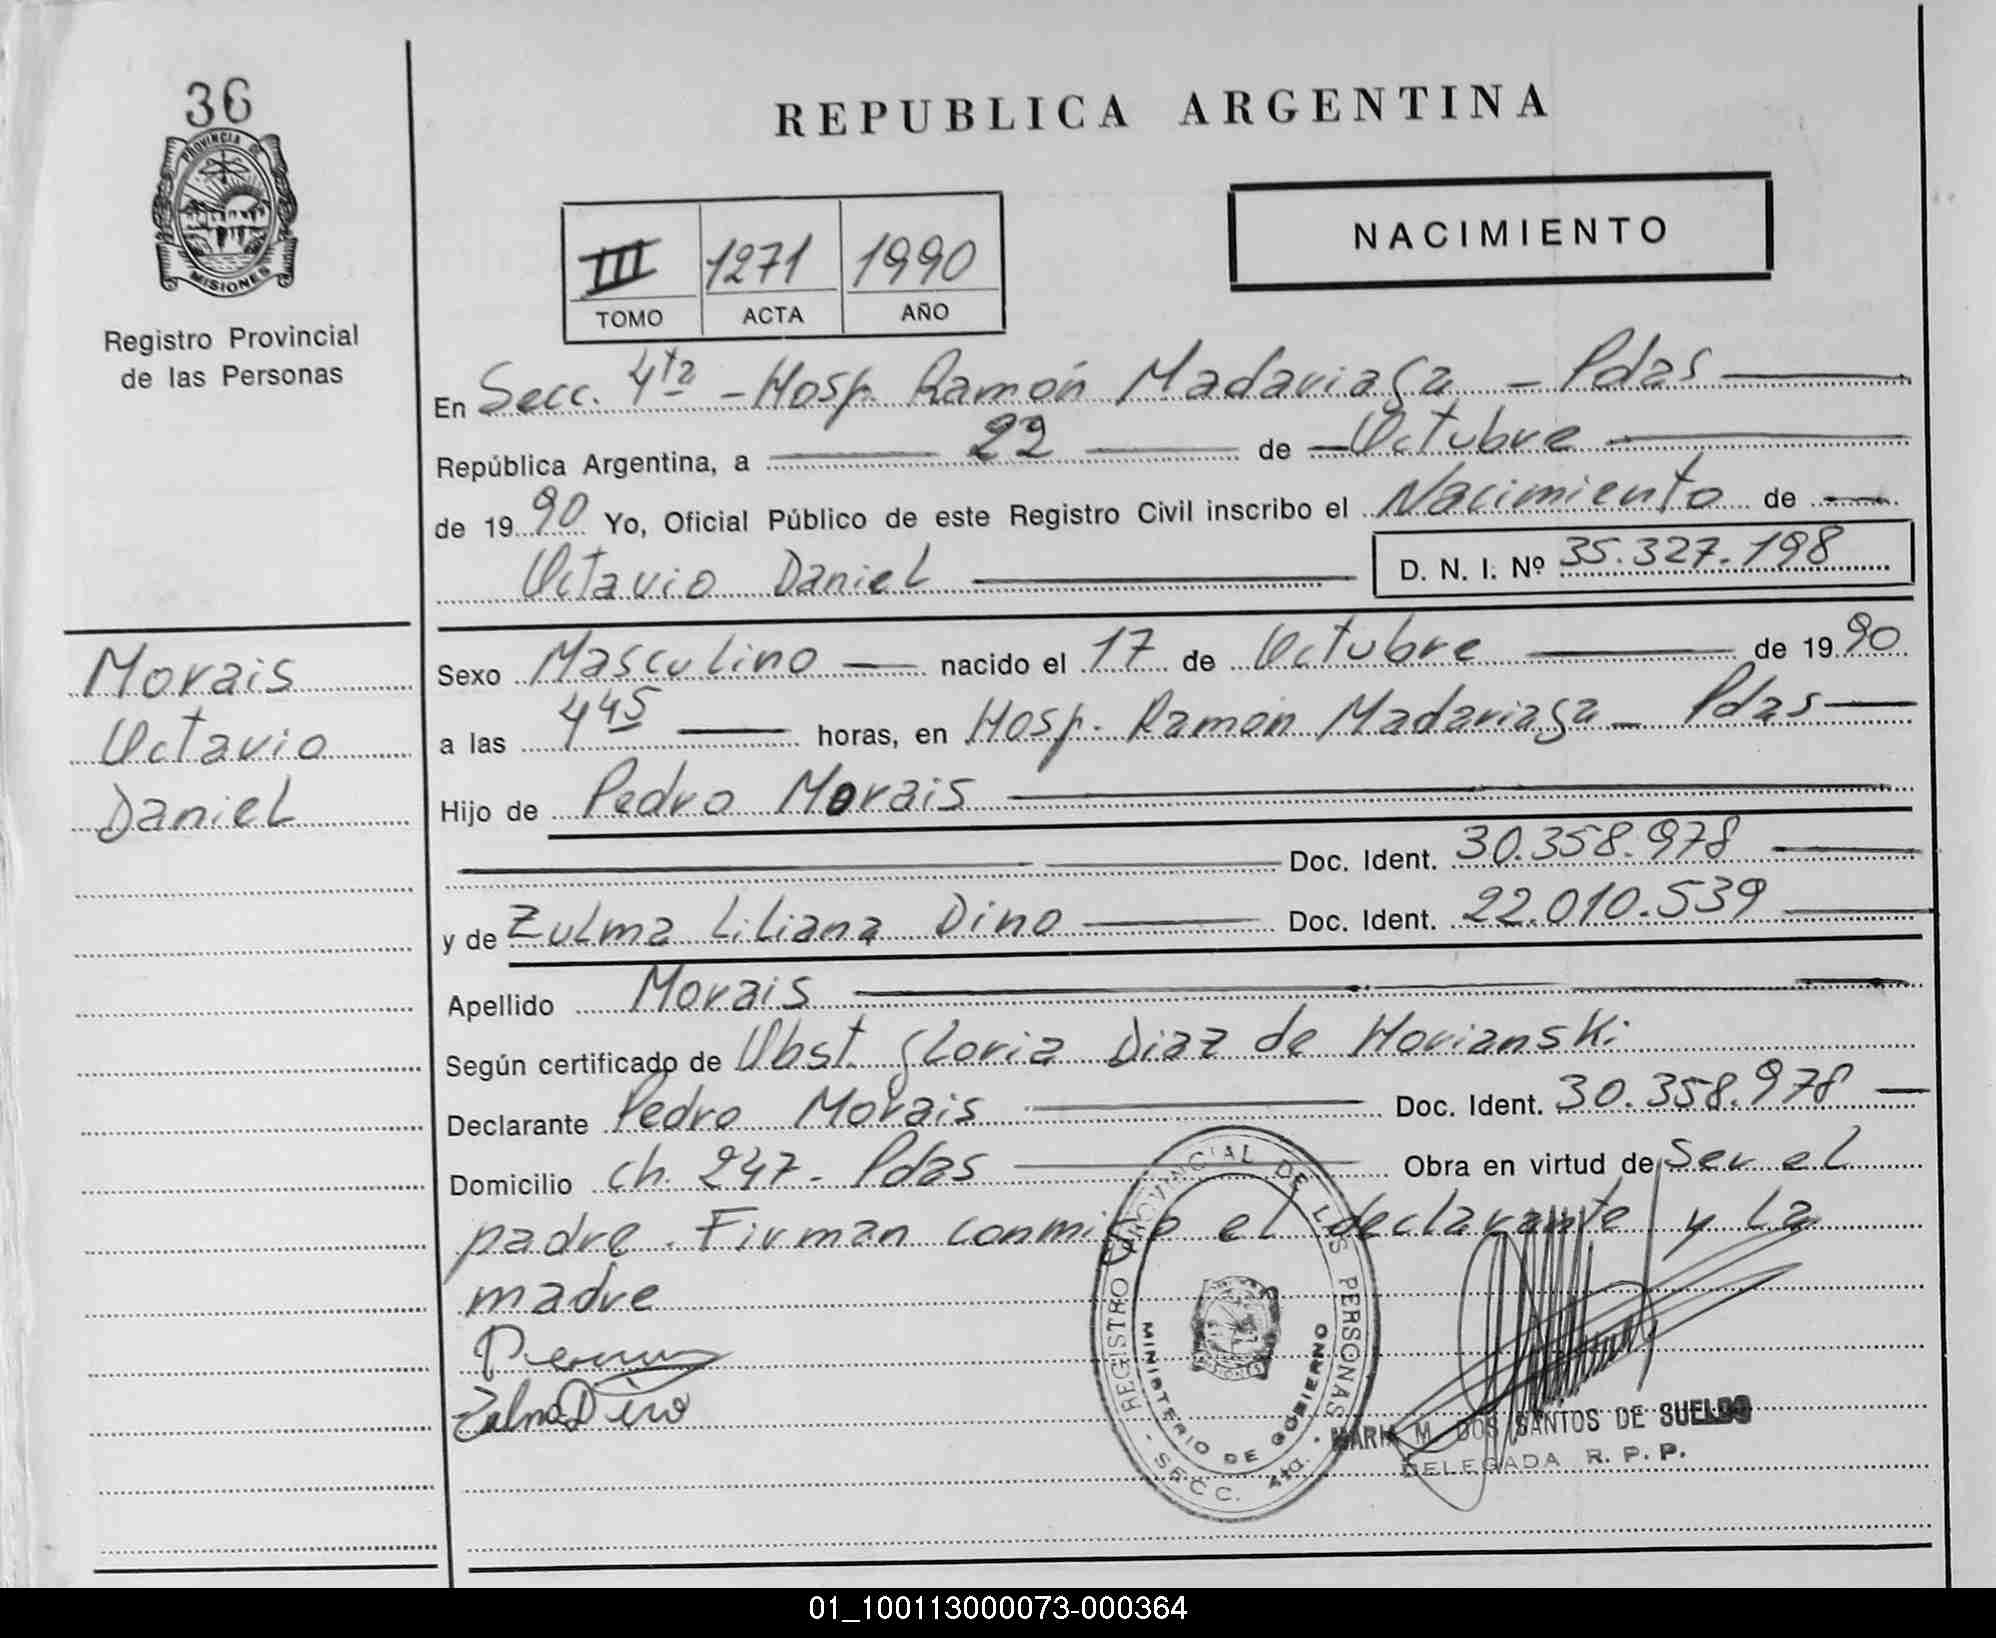 36
PROVINCIA DE
MISIONES
Registro Provincial
de las Personas
REPUBLICA ARGENTINA
III 1271 1990
TOMO ACTA AÑO
NACIMIENTO
En Secc. 4ta - Hosp. Ramón Madariaga - Pdas
República Argentina, a 22 de Octubre
de 1990 Yo, Oficial Público de este Registro Civil inscribo el Nacimiento de
Octavio Daniel D. N. I. Nº 35.327.198
Morais
Octavio
Daniel
Sexo Masculino nacido el 17 de Octubre de 1990
a las 4 45 horas, en Hosp. Ramón Madariaga - Pdas
Hijo de Pedro Morais
Doc. Ident. 30.358.978
y de Zulma Liliana Dino Doc. Ident. 22.010.539
Apellido Morais
Según certificado de Obst. Gloria Diaz de Horianski
Declarante Pedro Morais Doc. Ident. 30.358.978
Domicilio ch. 247 - Pdas Obra en virtud de Ser el
padre. Firman conmigo el declarante y la
madre
Zulma Dino
REGISTRO PROVINCIAL DE LAS PERSONAS - SECC. 4ta.
MINISTERIO DE GOBIERNO
MARIA M. DOS SANTOS DE SUELDO
DELEGADA R. P. P.
01_100113000073-000364